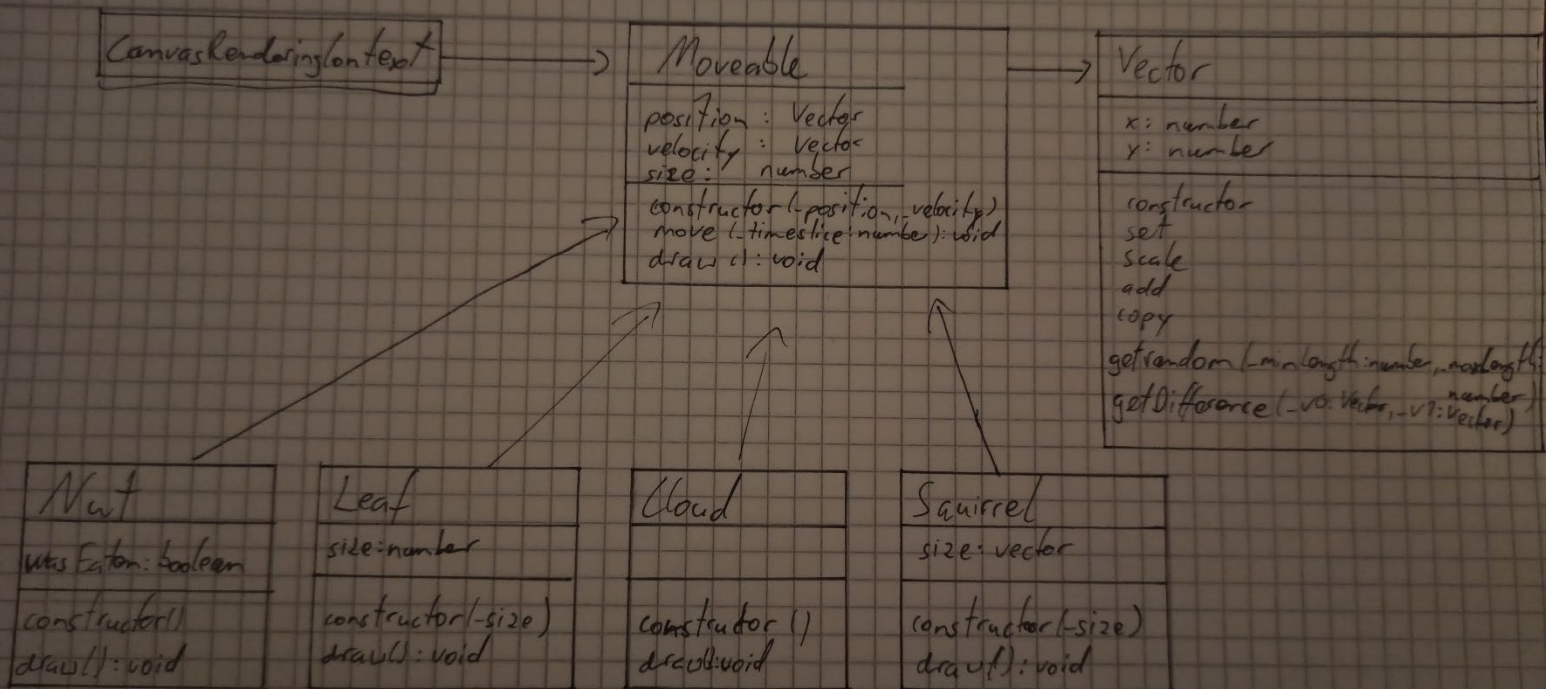 CanvasRenderingContext
Moveable
position: Vector
velocity: Vector
size: number
constructor(_position,_velocity)
move(_timeslice:number):void
draw():void
Vector
x: number
y: number
constructor
set
scale
add
copy
getrandom(_minLength:number,_maxLength:
number)
getDifference(_v0:Vector,_v1:Vector)
Nut
wasEaten:boolean
constructor()
draw():void
Leaf
size:number
constructor(_size)
draw():void
Cloud
constructor()
draw():void
Squirrel
size:vector
constructor(_size)
draw():void